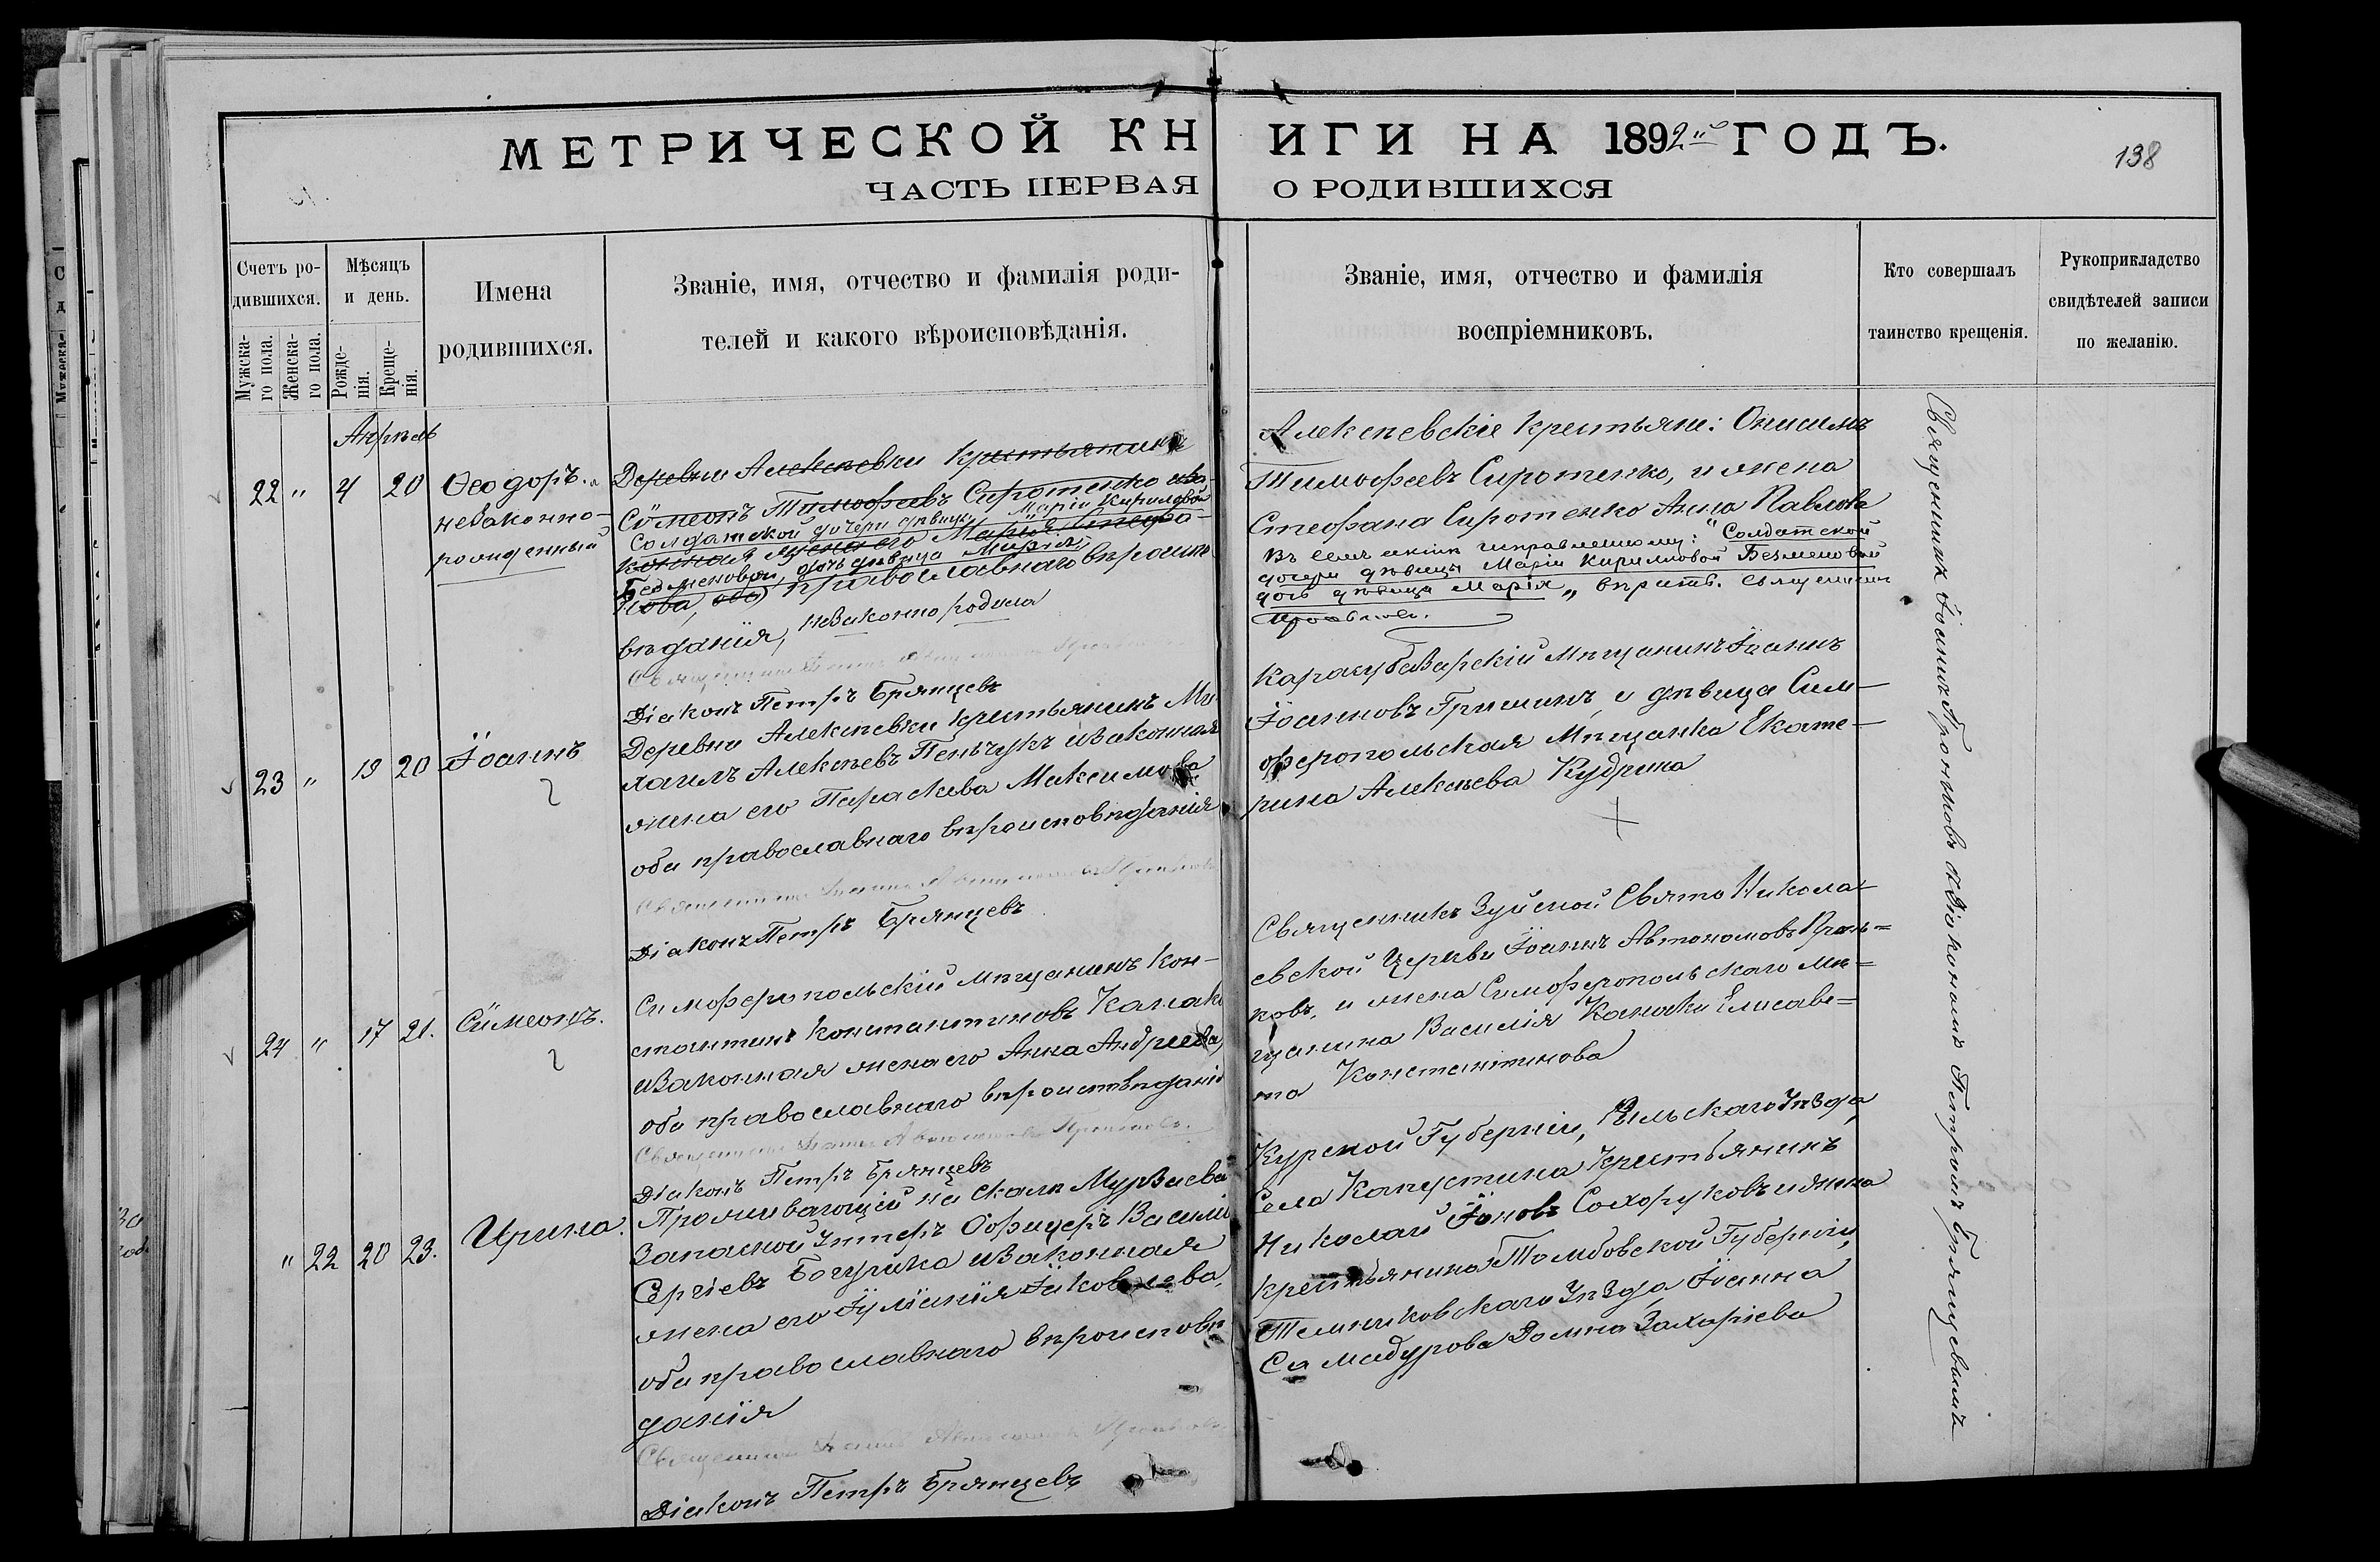 МЕТРИЧЕСКОЙ КНИГИ НА 1892й ГОДЪ.
138
ЧАСТЬ ПЕРВАЯ О РОДИВШИХСЯ
Счетъ ро-
дившихся.
Мужска-
го пола.
Женска-
го пола.
Мѣсяцъ
и день.
Рожде-
нія.
Креще-
нія.
Имена
родившихся.
Званіе, имя, отчество и фамилія роди-
телей и какого вѣроисповѣданія.
Званіе, имя, отчество и фамилія
воспріемниковъ.
Кто совершалъ
таинство крещенія.
Рукоприкладство
свидѣтелей записи
по желанію.
Апрѣль
22 " 4 20
Ѳеодоръ.
незаконно-
рожденный
Деревни Алексѣевки крестьянинъ
Сѵмеонъ Тимофеевъ Сиротенко и за-
Солдатской дочери дѣвицы Маріи Кириловой
конная жена его Марія Стефа-
Безменовой, дочь дѣвица Марія,
нова, оба православнаго вѣроиспо-
вѣданія, незаконно родила
Діаконъ Петръ Брянцевъ
Алексѣевскіе крестьяне: Онисимъ
Тимофеевъ Сиротенко, и жена
Стефана Сиротенко Анна Павлова
Въ семъ актѣ исправленному: "Солдатской
дочери дѣвицы Маріи Кирилловой Безменовой
дочь дѣвица Марія" вѣрить. Священникъ
23 " 19 20
Іоаннъ
Деревни Алексѣевки крестьянинъ Ми-
хаилъ Алексѣевъ Пенчукъ и законная
жена его Параскева Максимова
оба православнаго вѣроисповѣданія
Діаконъ Петръ Брянцевъ
Карасубазарскій мѣщанинъ Іоаннъ
Іоанновъ Гришинъ, и дѣвица Сим-
феропольская мѣщанка Екате-
рина Алексѣева Кудрина
24 " 17 21.
Сѵмеонъ.
Симферопольскій мѣщанинъ Кон-
стантинъ Константиновъ Канаки
и законная жена его Анна Андреева,
оба православнаго вѣроисповѣданія
Священникъ Іоаннъ Автономовъ Прониковъ.
Діаконъ Петръ Брянцевъ
Священникъ Зуйской Свято Никола-
евской Церкви Іоаннъ Автономовъ Прони=
ковъ, и жена Симферопольскаго мѣ=
щанина Василія Канаки Елисаве=
та Константинова
" 22 20 23.
Ирина.
Проживающій на скалѣ Мурзаева
Запасной Унтеръ Офицеръ Василій
Сергіевъ Богушко и законная
жена его Іуліанія Іаковлева,
оба православнаго вѣроисповѣ
данія
Діаконъ Петръ Брянцевъ
Курской Губерніи, Рыльскаго Уѣзда,
Села Капустина крестьянинъ
Николай Іоновъ Сохоруковъ и жена
крестьянина Тамбовской Губерніи,
Темниковскаго Уѣзда, Іоанна
Самадурова Домна Захаріева
Священникъ Іоаннъ Прониковъ съ Діакономъ Петромъ Брянцевымъ